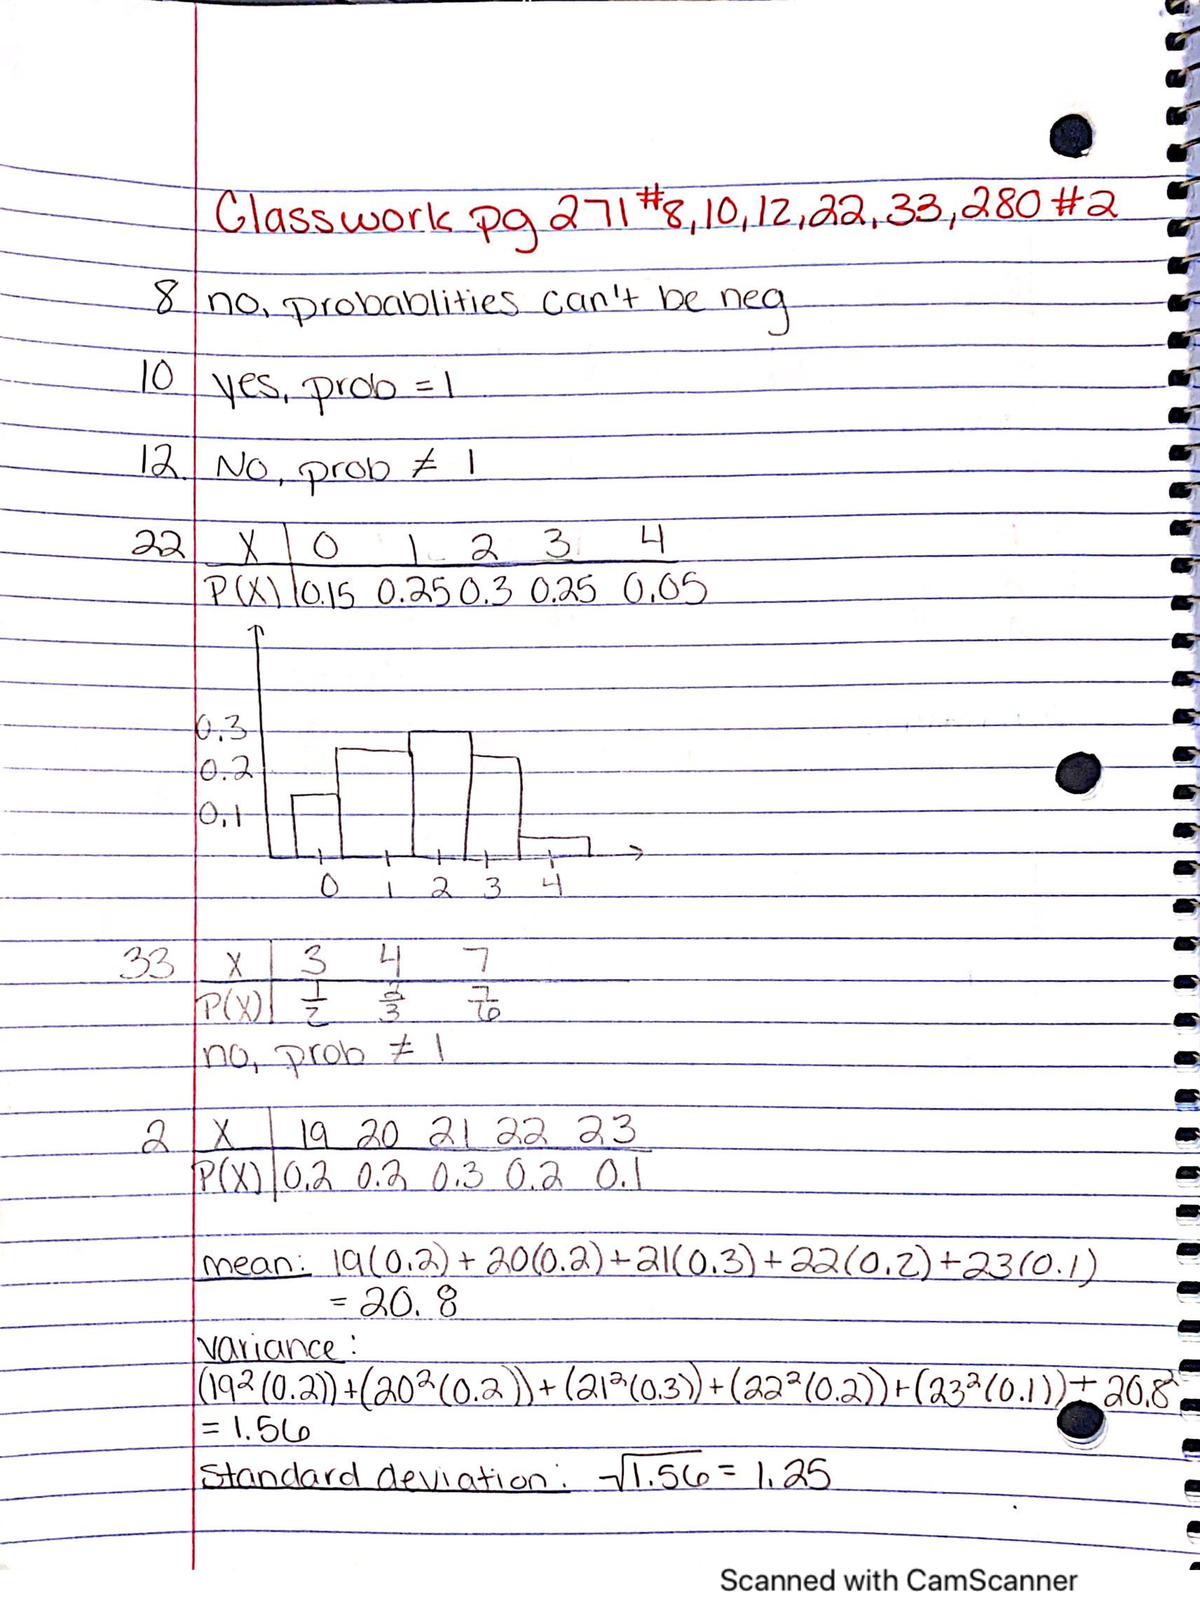 Classwork pg 271 #8,10,12,22,33,280 #2
8 no, probablities can't be neg
10 yes, prob = 1
12. No, prob ≠ 1
22 X 0 1 2 3 4
P(X) 0.15 0.25 0.3 0.25 0.05
0.3
0.2
0.1
0 1 2 3 4
33 X 3 4 7
P(X) 1/2 2/3 7/6
no, prob ≠ 1
2 X 19 20 21 22 23
P(X) 0.2 0.2 0.3 0.2 0.1
mean: 19(0.2) + 20(0.2) + 21(0.3) + 22(0.2) + 23(0.1)
= 20.8
variance:
(19²(0.2)) + (20²(0.2)) + (21²(0.3)) + (22²(0.2)) + (23²(0.1)) 20.8²
= 1.56
standard deviation: √1.56 = 1.25
Scanned with CamScanner